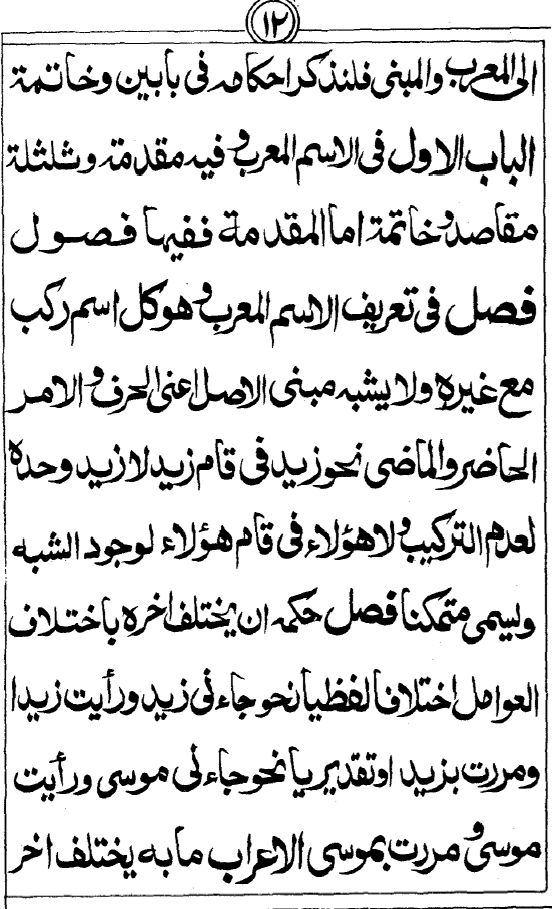 ١٢
الى المعرب والمبنى فلنذكر احكامه فى بابين وخاتمة
الباب الاول فى الاسم المعرب وفيه مقدمة وثلثلة
مقاصد وخاتمة اما المقدمة ففيها فصول
فصل فى تعريف الاسم المعرب وهو كل اسم ركب
مع غيره ولا يشبه مبنى الاصل اعنى الحرف والامر
الحاضر والماضى نحو زيد فى قام زيد لا زيد وحده
لعدم التركيب ولا هؤلاء فى قام هؤلاء لوجود الشبه
ويسمى متمكنا فصل حكمه ان يختلف اخره باختلاف
العوامل اختلافا لفظيا نحو جاءنى زيد ورأيت زيدا
ومررت بزيد او تقديريا نحو جاءنى موسى ورأيت
موسى ومررت بموسى الاعراب مابه يختلف اخر